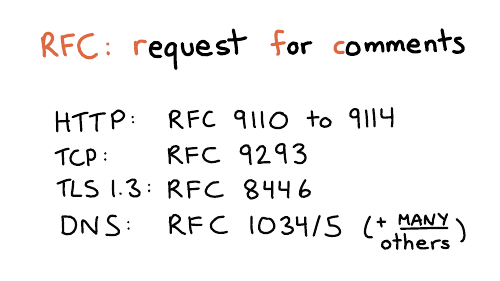 RFC: request for comments
HTTP: RFC 9110 to 9114
TCP: RFC 9293
TLS 1.3: RFC 8446
DNS: RFC 1034/5 (+ MANY others)